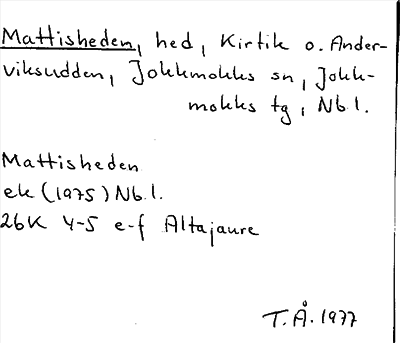 Mattisheden, hed, Kirtik o. Ander-
viksudden, Jokkmokks sn, Jokk-
mokks tg, Nb l.
Mattisheden
ek (1975) Nb. l.
26K 4-5 e-f Altajaure
T.Å. 1977